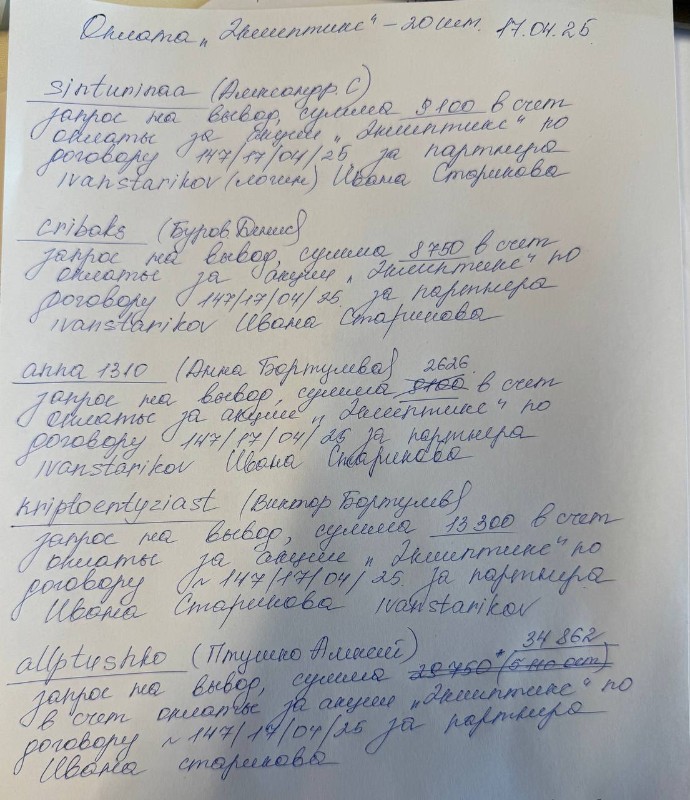 Оплата „Эклиптикс“ – 20 шт. 17.04.25
sintuninaa (Александр. С)
запрос на вывод, сумма 9100 в счет
оплаты за акции „Эклиптикс“ по
договору 147/17/04/25 за партнера
ivanstarikov (логин) Ивана Старикова
cribaks (Буров Денис)
запрос на вывод, сумма 8750 в счет
оплаты за акции „Эклиптикс“ по
договору 147/17/04/25 за партнера
ivanstarikov Ивана Старикова
anna 1310 (Анна Бортулева) 2626
запрос на вывод, сумма 9100 в счет
оплаты за акции „Эклиптикс“ по
договору 147/17/04/25 за партнера
ivanstarikov Ивана Старикова
kriptoentyziast (Виктор Бортулев)
запрос на вывод, сумма 13300 в счет
оплаты за акции „Эклиптикс“ по
договору ~ 147/17/04/25. за партнера
Ивана Старикова ivanstarikov
allptushko (Птушко Алексей) 34 862
запрос на вывод, сумма 29750
в счет оплаты за акции „Эклиптикс“ по
договору ~ 147/17/04/25 за партнера
Ивана старикова